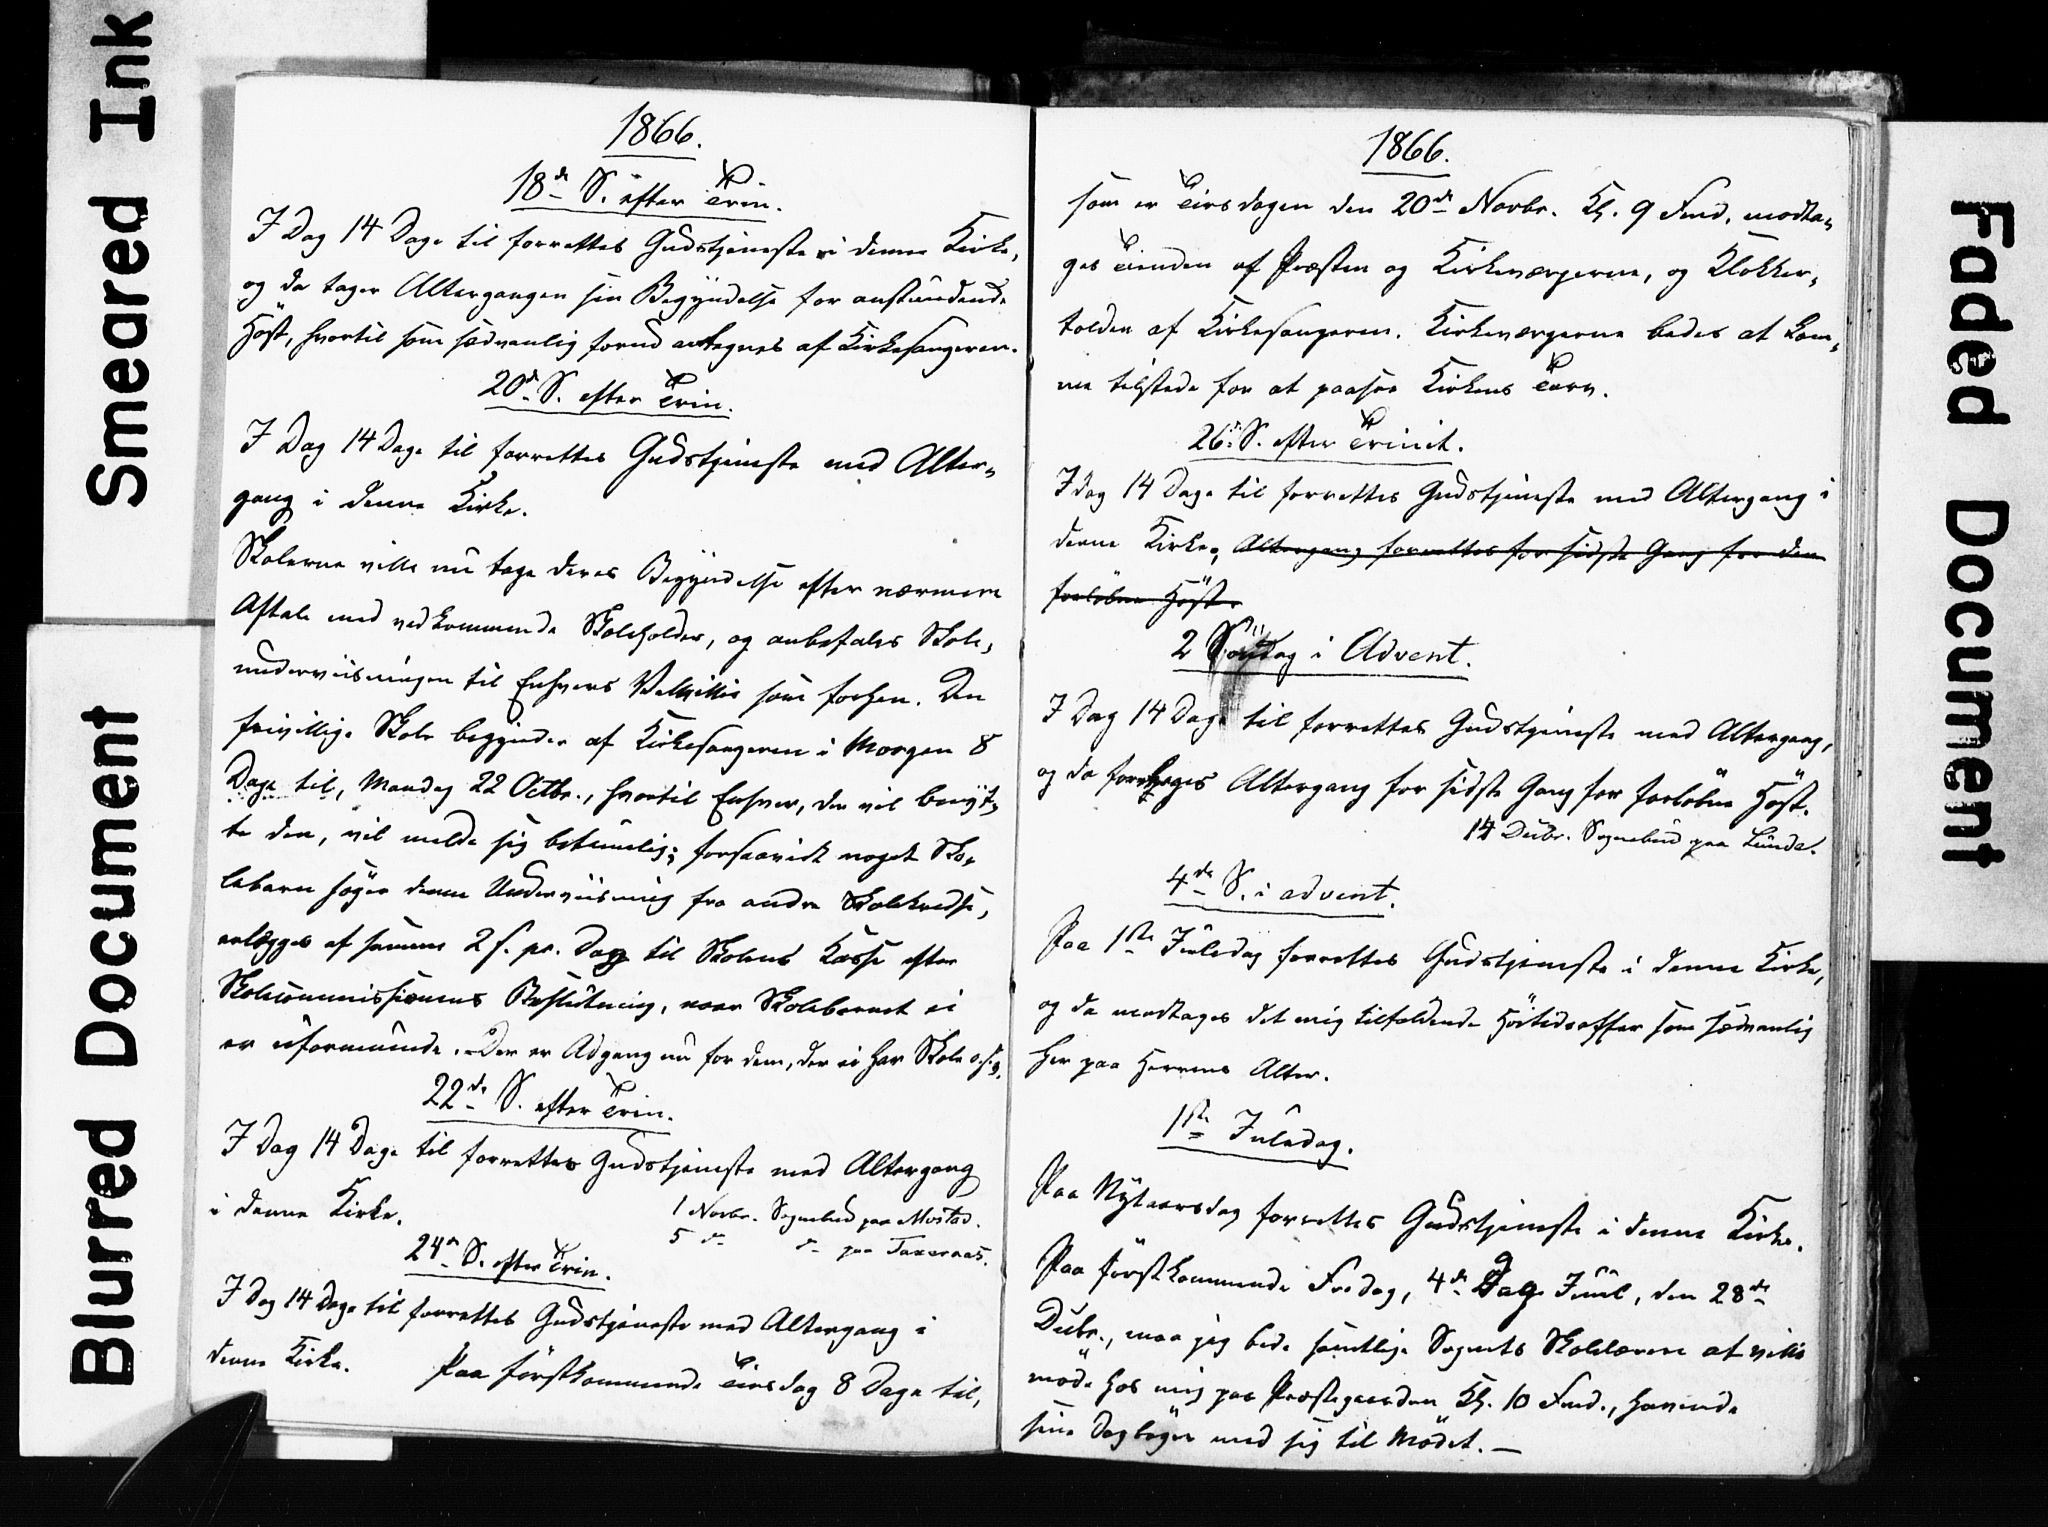 Smeared Ink
Blurred Document
Faded Document
1866.
18de S. efter Trin.
I Dag 14 Dage til forrettes Gudstjeneste i denne Kirke,
og da tager Altergangen sin Begyndelse for anstundende
Höst, hvortil som sædvanlig forud antegnes af Kirkesangeren.
20de S. efter Trin.
I Dag 14 Dage til forrettes Gudstjeneste med Alter-
gang i denne Kirke.
Skolerne ville nu tage deres Begyndelse efter nærmere
Aftale med vedkommende Skoleholder, og anbefales Skole-
underviisningen til Enhvers Velvillie som forhen. Den
frivillige Skole begynder af Kirkesangeren i Morgen 8
Dage til, Mandag 22 Octbr., hvortil Enhver, der vil benyt-
te den, vil melde sig betimelig; forsaavidt noget Sko-
lebarn søger denne Underviisning fra andre Skolekredse,
erlægges af samme 2 s. pr. Dag til Skolens Kasse efter
Skolecommissionens Beslutning, naar Skolebarnet ei
er uformuende. Der er Adgang nu for dem, der ei har Skole o.s.v.
22de S. efter Trin.
I Dag 14 Dage til forrettes Gudstjeneste med Altergang
i denne Kirke.
1 Novbr. Sognebud paa Mostad.
5 do do paa Taxeraas.
24de S. efter Trin.
I Dag 14 Dage til forrettes Gudstjeneste med Altergang i
denne Kirke. Paa förstkommende Tirsdag 8 Dage til,
1866.
som er Tirsdagen den 20de Novbr. Kl. 9 Fmd. modta-
ges Tienden af Præsten og Kirkeværgerne, og Klokker-
tolden af Kirkesangeren. Kirkeværgerne bedes at kom-
me tilstede for at paasee Kirkens Tarv.
26de S. efter Trinit.
I dag 14 Dage til forrettes Gudstjeneste med Altergang i
denne Kirke, Altergang forrettes for sidste Gang for den
forløbne Høst.
2 Söndag i Advent.
I Dag 14 Dage til forrettes Gudstjeneste med Altergang,
og da foretages Altergang for sidste Gang for forløbne Høst.
14 Decbr. Sognebud paa Lunde.
4de S. i advent.
Paa 1ste Juledag forrettes Gudstjeneste i denne Kirke,
og da modtages det mig tilfaldende Höitidsoffer som sædvanlig
her paa Herrens Alter.
1ste Juledag.
Paa Nytaarsdag forrettes Gudstjeneste i denne Kirke.
Paa förstkommende Fredag, 4de Dag Juul, den 28de
Decbr., maa jeg bede samtlige Sognets Skolelærere at ville
møde hos mig paa Præstegaarden Kl. 10 Fmd., havende
sine Dagbøger med sig til Mødet. —